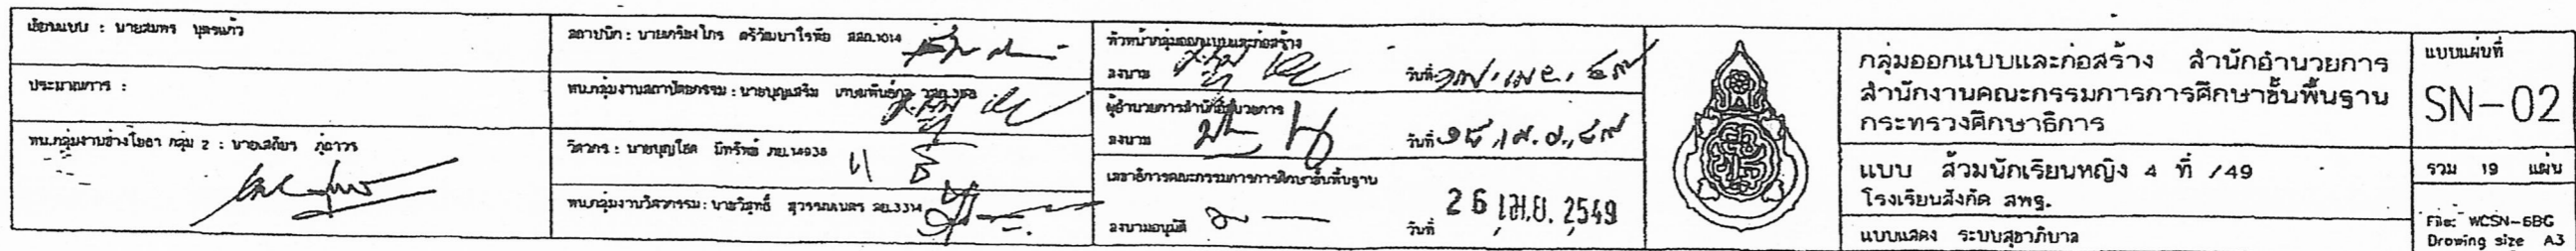 เขียนแบบ : นายสมพร บุตรแก้ว
ประมาณการ :
หน.กลุ่มงานช่างโยธา กลุ่ม 2 : นายเสถียร ภู่ถาวร
สถาปนิก : นายเกรียงไกร ตรีวัฒนาโรทัย สสถ.1014
หน.กลุ่มงานสถาปัตยกรรม : นายบุญเสริม
วิศวกร : นายบุญโชค มีทรัพย์ ภย.14938
หน.กลุ่มงานวิศวกรรม : นายวิสุทธิ์ สุวรรณเนตร สย.3314
หัวหน้ากลุ่มออกแบบและก่อสร้าง
ลงนาม วันที่
ผู้อำนวยการสำนักอำนวยการ
ลงนาม วันที่
เลขาธิการคณะกรรมการการศึกษาขั้นพื้นฐาน
ลงนามอนุมัติ วันที่ 26 เม.ย. 2549
กลุ่มออกแบบและก่อสร้าง สำนักอำนวยการ
สำนักงานคณะกรรมการการศึกษาขั้นพื้นฐาน
กระทรวงศึกษาธิการ
แบบ ส้วมนักเรียนหญิง 4 ที่ /49
โรงเรียนสังกัด สพฐ.
แบบแสดง ระบบสุขาภิบาล
แบบแผ่นที่
SN-02
รวม 19 แผ่น
File: WCSN-6BG
Drawing size A3